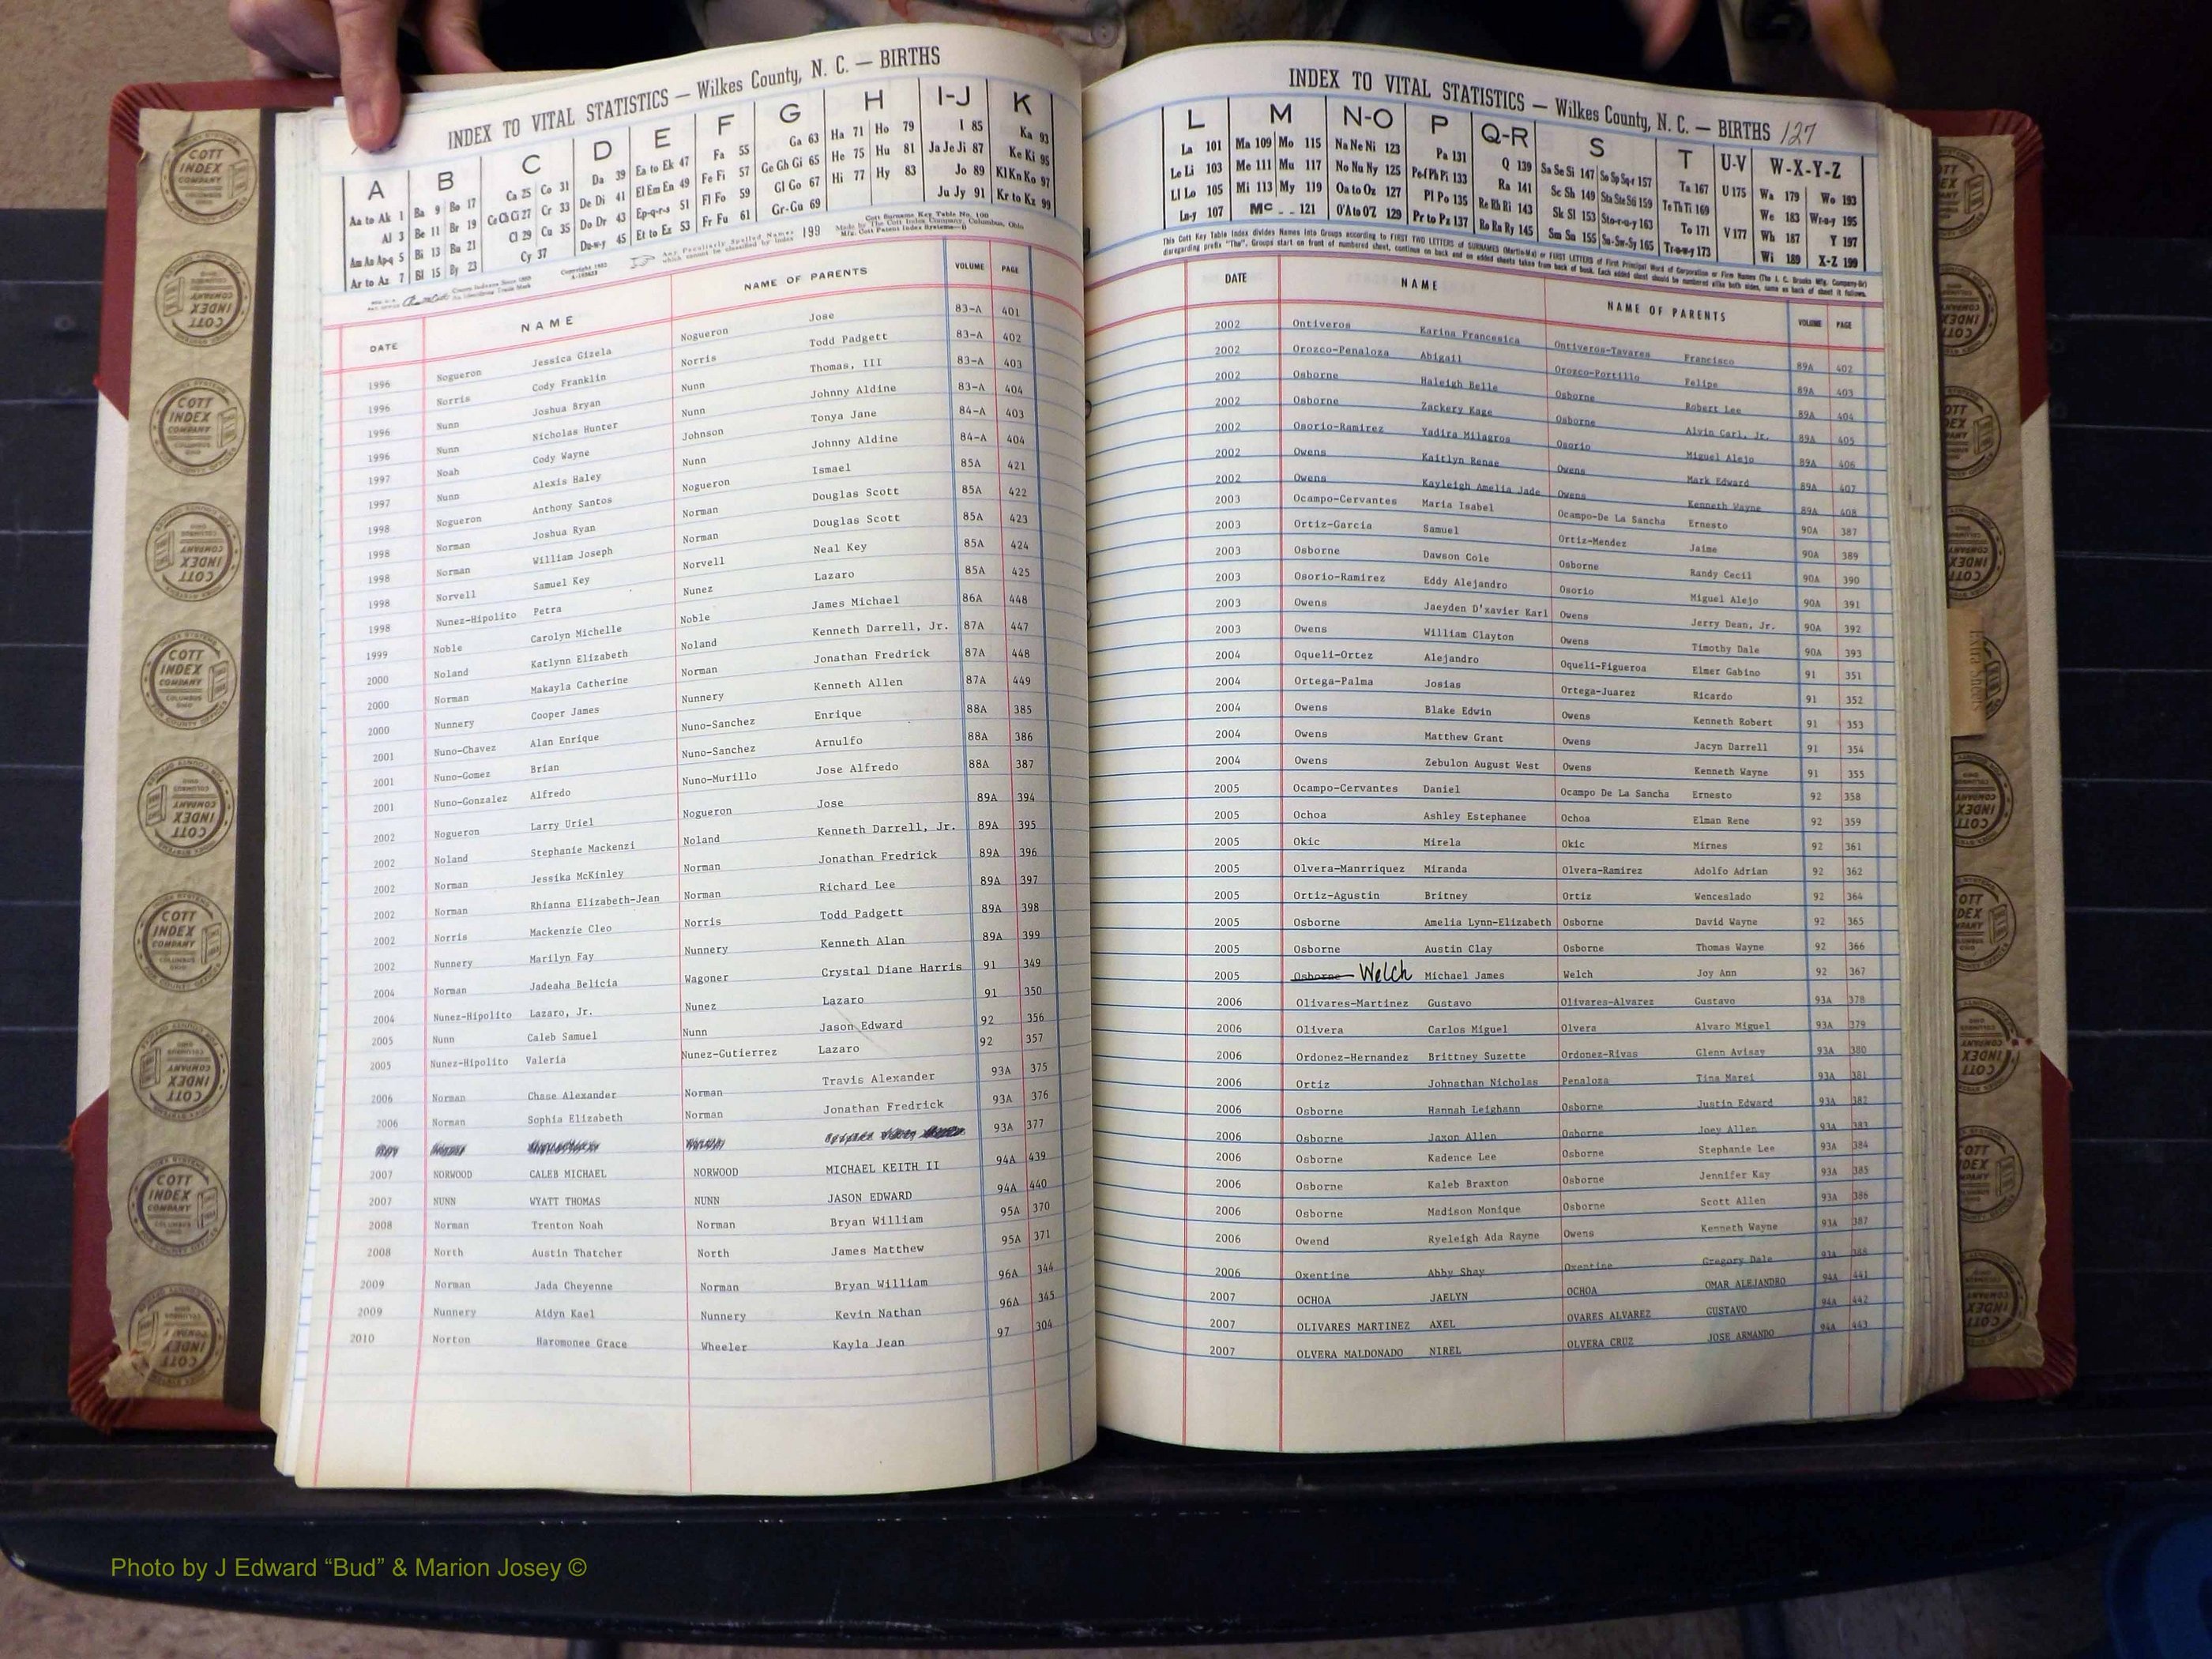 INDEX TO VITAL STATISTICS — Wilkes County, N. C. — BIRTHS
A B C D E F G H I-J K
Aa to Ak 1 Ba 9 Bo 17 Ca 25 Co 31 Da 39 Ea to Ek 47 Fa 55 Ga 63 Ha 71 Ho 79 I 85 Ka 93
Al 3 Be 11 Br 19 Ce Ch Ci 27 Cr 33 De Di 41 El Em En 49 Fe Fi 57 Ge Gh Gi 65 He 75 Hu 81 Ja Je Ji 87 Ke Ki 95
Am An Ap-q 5 Bi 13 Bu 21 Cl 29 Cu 35 Do Dr 43 Ep-q-r-s 51 Fl Fo 59 Gl Go 67 Hi 77 Hy 83 Jo 89 Kl Kn Ko 97
Ar to Az 7 Bl 15 By 23 Cy 37 Du-w-y 45 Et to Ez 53 Fr Fu 61 Gr-Gu 69 Ju Jy 91 Kr to Kz 99
Any Peculiarly Spelled Names which cannot be classified by index 199
Cott Surname Key Table No. 100
Made by The Cott Index Company, Columbus, Ohio
DATE NAME NAME OF PARENTS VOLUME PAGE
1996 Nogueron Jessica Gizela Nogueron Jose 83-A 401
1996 Norris Cody Franklin Norris Todd Padgett 83-A 402
1996 Nunn Joshua Bryan Nunn Thomas, III 83-A 403
1996 Nunn Nicholas Hunter Nunn Johnny Aldine 83-A 404
1997 Noah Cody Wayne Johnson Tonya Jane 84-A 403
1997 Nunn Alexis Haley Nunn Johnny Aldine 84-A 404
1998 Nogueron Anthony Santos Nogueron Ismael 85A 421
1998 Norman Joshua Ryan Norman Douglas Scott 85A 422
1998 Norman William Joseph Norman Douglas Scott 85A 423
1998 Norvell Samuel Key Norvell Neal Key 85A 424
1998 Nunez-Hipolito Petra Nunez Lazaro 85A 425
1999 Noble Carolyn Michelle Noble James Michael 86A 448
2000 Noland Katlynn Elizabeth Noland Kenneth Darrell, Jr. 87A 447
2000 Norman Makayla Catherine Norman Jonathan Fredrick 87A 448
2000 Nunnery Cooper James Nunnery Kenneth Allen 87A 449
2001 Nuno-Chavez Alan Enrique Nuno-Sanchez Enrique 88A 385
2001 Nuno-Gomez Brian Nuno-Sanchez Arnulfo 88A 386
2001 Nuno-Gonzalez Alfredo Nuno-Murillo Jose Alfredo 88A 387
2002 Nogueron Larry Uriel Nogueron Jose 89A 394
2002 Noland Stephanie Mackenzi Noland Kenneth Darrell, Jr. 89A 395
2002 Norman Jessika McKinley Norman Jonathan Fredrick 89A 396
2002 Norman Rhianna Elizabeth-Jean Norman Richard Lee 89A 397
2002 Norris Mackenzie Cleo Norris Todd Padgett 89A 398
2002 Nunnery Marilyn Fay Nunnery Kenneth Alan 89A 399
2004 Norman Jadeaha Belicia Wagoner Crystal Diane Harris 91 349
2004 Nunez-Hipolito Lazaro, Jr. Nunez Lazaro 91 350
2005 Nunn Caleb Samuel Nunn Jason Edward 92 356
2005 Nunez-Hipolito Valeria Nunez-Gutierrez Lazaro 92 357
2006 Norman Chase Alexander Norman Travis Alexander 93A 375
2006 Norman Sophia Elizabeth Norman Jonathan Fredrick 93A 376
93A 377
2007 NORWOOD CALEB MICHAEL NORWOOD MICHAEL KEITH II 94A 439
2007 NUNN WYATT THOMAS NUNN JASON EDWARD 94A 440
2008 Norman Trenton Noah Norman Bryan William 95A 370
2008 North Austin Thatcher North James Matthew 95A 371
2009 Norman Jada Cheyenne Norman Bryan William 96A 344
2009 Nunnery Aidyn Kael Nunnery Kevin Nathan 96A 345
2010 Norton Haromonee Grace Wheeler Kayla Jean 97 304
INDEX TO VITAL STATISTICS — Wilkes County, N. C. — BIRTHS 127
L M N-O P Q-R S T U-V W-X-Y-Z
La 101 Ma 109 Mo 115 Na Ne Ni 123 Pa 131 Q 139 Sa Se Si 147 So Sp Sq-r 157 Ta 167 U 175 Wa 179 Wo 193
Le Li 103 Me 111 Mu 117 No Nu Ny 125 Pe-f Ph Pi 133 Ra 141 Sc Sh 149 Sta Ste Sti 159 Te Th Ti 169 We 183 Wr-o-y 195
Ll Lo 105 Mi 113 My 119 Oa to Oz 127 Pl Po 135 Re Rh Ri 143 Sk Sl 153 Sto-r-u-y 163 To 171 V 177 Wh 187 Y 197
Lu-y 107 Mc 121 O'A to O'Z 129 Pr to Pz 137 Ro Ru Ry 145 Sm Sn 155 Su-Sw-Sy 165 Tr-u-w-y 173 Wi 189 X-Z 199
This Cott Key Table Index divides Names into Groups according to FIRST TWO LETTERS of SURNAMES (Martin-Ma) or FIRST LETTERS of First Principal Word of Corporation or Firm Names (The J. C. Brooks Mfg. Company-Br)
disregarding prefix "The". Groups start on front of numbered sheet, continue on back and on added sheets taken from back of book. Each added sheet should be numbered alike both sides, same as back of sheet it follows.
DATE NAME NAME OF PARENTS VOLUME PAGE
2002 Ontiveros Karina Francesica Ontiveros-Tavares Francisco 89A 402
2002 Orozco-Penaloza Abigail Orozco-Portillo Felipe 89A 403
2002 Osborne Haleigh Belle Osborne Robert Lee 89A 404
2002 Osborne Zackery Kage Osborne Alvin Carl, Jr. 89A 405
2002 Osorio-Ramirez Yadira Milagros Osorio Miguel Alejo 89A 406
2002 Owens Kaitlyn Renae Owens Mark Edward 89A 407
2002 Owens Kayleigh Amelia Jade Owens Kenneth Wayne 89A 408
2003 Ocampo-Cervantes Maria Isabel Ocampo-De La Sancha Ernesto 90A 387
2003 Ortiz-Garcia Samuel Ortiz-Mendez Jaime 90A 389
2003 Osborne Dawson Cole Osborne Randy Cecil 90A 390
2003 Osorio-Ramirez Eddy Alejandro Osorio Miguel Alejo 90A 391
2003 Owens Jaeyden D'xavier Karl Owens Jerry Dean, Jr. 90A 392
2003 Owens William Clayton Owens Timothy Dale 90A 393
2004 Oqueli-Ortez Alejandro Oqueli-Figueroa Elmer Gabino 91 351
2004 Ortega-Palma Josias Ortega-Juarez Ricardo 91 352
2004 Owens Blake Edwin Owens Kenneth Robert 91 353
2004 Owens Matthew Grant Owens Jacyn Darrell 91 354
2004 Owens Zebulon August West Owens Kenneth Wayne 91 355
2005 Ocampo-Cervantes Daniel Ocampo De La Sancha Ernesto 92 358
2005 Ochoa Ashley Estephanee Ochoa Elman Rene 92 359
2005 Okic Mirela Okic Mirnes 92 361
2005 Olvera-Manrriquez Miranda Olvera-Ramirez Adolfo Adrian 92 362
2005 Ortiz-Agustin Britney Ortiz Wenceslado 92 364
2005 Osborne Amelia Lynn-Elizabeth Osborne David Wayne 92 365
2005 Osborne Austin Clay Osborne Thomas Wayne 92 366
2005 Osborne Welch Michael James Welch Joy Ann 92 367
2006 Olivares-Martinez Gustavo Olivares-Alvarez Gustavo 93A 378
2006 Olivera Carlos Miguel Olvera Alvaro Miguel 93A 379
2006 Ordonez-Hernandez Brittney Suzette Ordonez-Rivas Glenn Avisay 93A 380
2006 Ortiz Johnathan Nicholas Penaloza Tina Marei 93A 381
2006 Osborne Hannah Leighann Osborne Justin Edward 93A 382
2006 Osborne Jaxon Allen Osborne Joey Allen 93A 383
2006 Osborne Kadence Lee Osborne Stephanie Lee 93A 384
2006 Osborne Kaleb Braxton Osborne Jennifer Kay 93A 385
2006 Osborne Madison Monique Osborne Scott Allen 93A 386
2006 Owend Ryeleigh Ada Rayne Owens Kenneth Wayne 93A 387
2006 Oxentine Abby Shay Oxentine Gregory Dale 93A 388
2007 OCHOA JAELYN OCHOA OMAR ALEJANDRO 94A 441
2007 OLIVARES MARTINEZ AXEL OVARES ALVAREZ GUSTAVO 94A 442
2007 OLVERA MALDONADO NIREL OLVERA CRUZ JOSE ARMANDO 94A 443
COTT INDEX COMPANY
Photo by J Edward “Bud” & Marion Josey ©